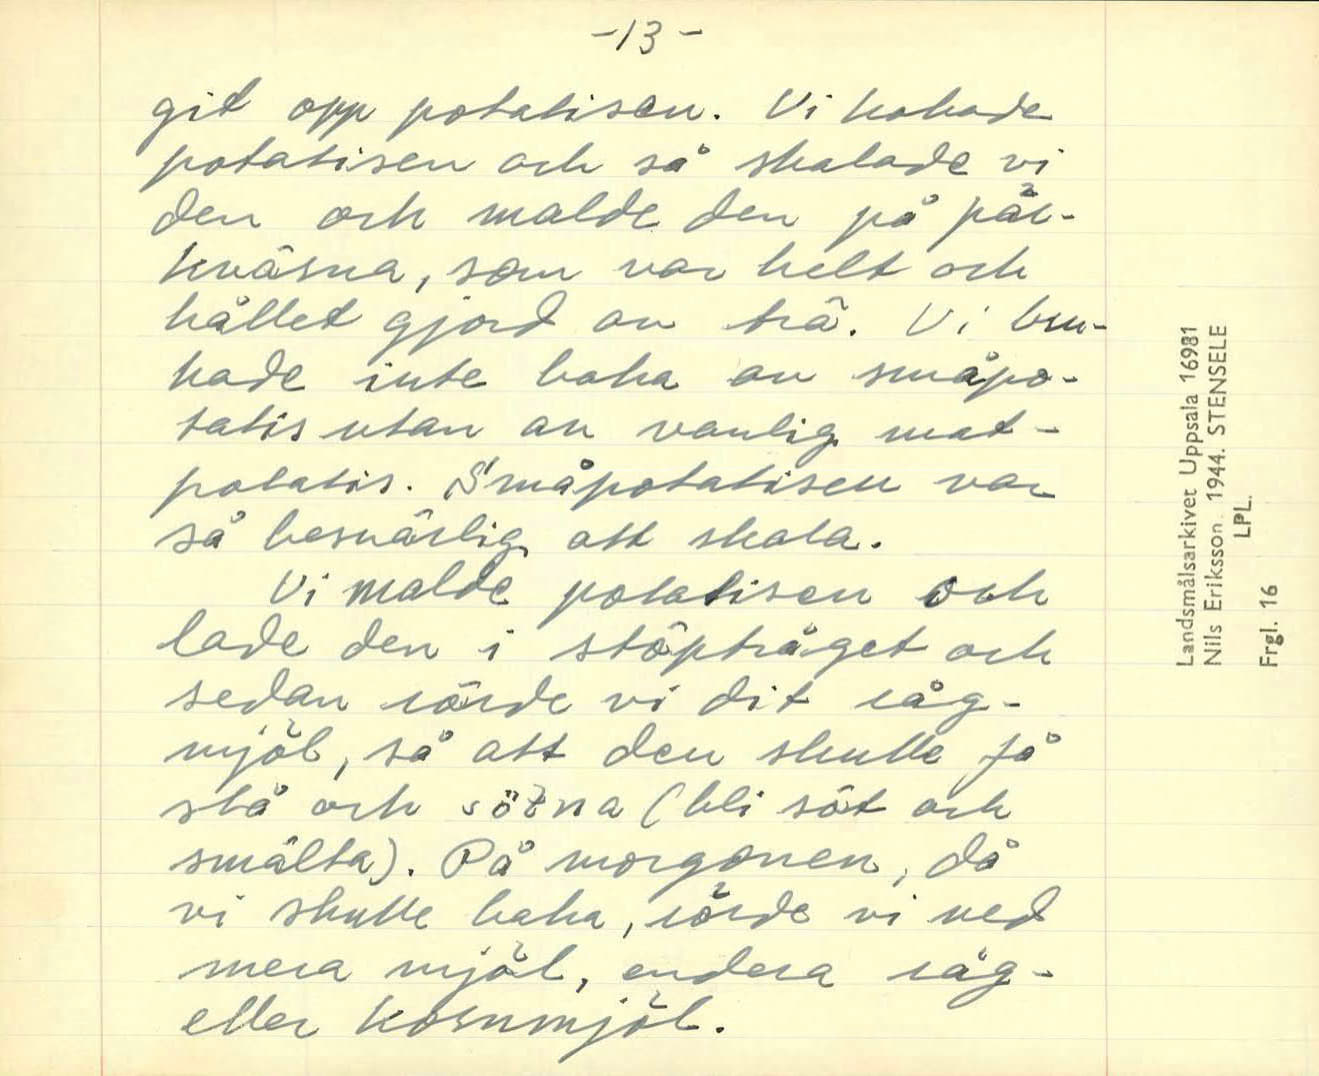 -13-
git opp potatisen. Vi kokade
potatisen och så skalade vi
den och malde den på pär-
kväsna, som var helt och
hållet gjord av trä. Vi bru-
kade inte baka av småpo-
tatis utan av vanlig mat-
potatis. Småpotatisen var
så besvärlig att skala.
Vi malde potatisen och
lade den i stöptråget och
sedan rörde vi dit råg-
mjöl, så att den skulle få
stå och sötna (bli söt och
smälta). På morgonen, då
vi skulle baka, rörde vi ned
mera mjöl, endera råg-
eller kornmjöl.
Landsmålsarkivet Uppsala 16981
Nils Eriksson. 1944. STENSELE
LPL.
Frgl. 16